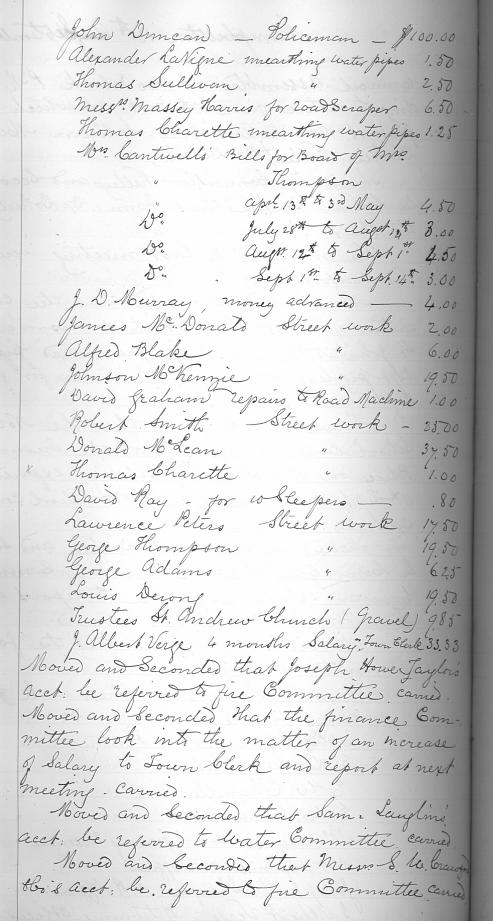 John Duncan — Policeman — $100.00
Alexander LaVigne unearthing water pipes 1.50
Thomas Sullivan " 2.50
Messrs Massey Harris for road Scraper 6.50
Thomas Charette unearthing water pipes 1.25
Mrs Cantwell's Bills for Board of Mrs
" Thompson
aprl 13th to 3rd May 4.50
Do July 28th to Augst 12th 3.00
Do Augst 12th to Sept 1st 4.50
Do Sept 1st to Sept 14th 3.00
J. D. Murray, money advanced — 4.00
James McDonald Street work 2.00
Alfred Blake " 6.00
Johnson McKenzie " 19.50
David Graham repairs to Road Machine 1.00
Robert Smith Street work - 25.00
Donald McLean " 37.50
x Thomas Charette " 1.00
David Ray - for 10 Sleepers — .80
Lawrence Peters Street work 17.50
George Thompson " 19.50
George Adams " 6.25
Louis " 19.50
Trustees St. Andrew Church (Gravel) 9.85
J. Albert Verge 4 months Salary, Town Clerk 33.33
Moved and Seconded that Joseph Howe Taylor's
acct. be referred to fire Committee carried.
Moved and Seconded that the finance Com-
mittee look into the matter of an increase
of Salary to Town Clerk and report at next
meeting - carried.
Moved and Seconded that Sam. Laughlin's
acct. be referred to Water Committee carried
Moved and Seconded that Messrs E. W.
acct. be referred to fire Committee carried